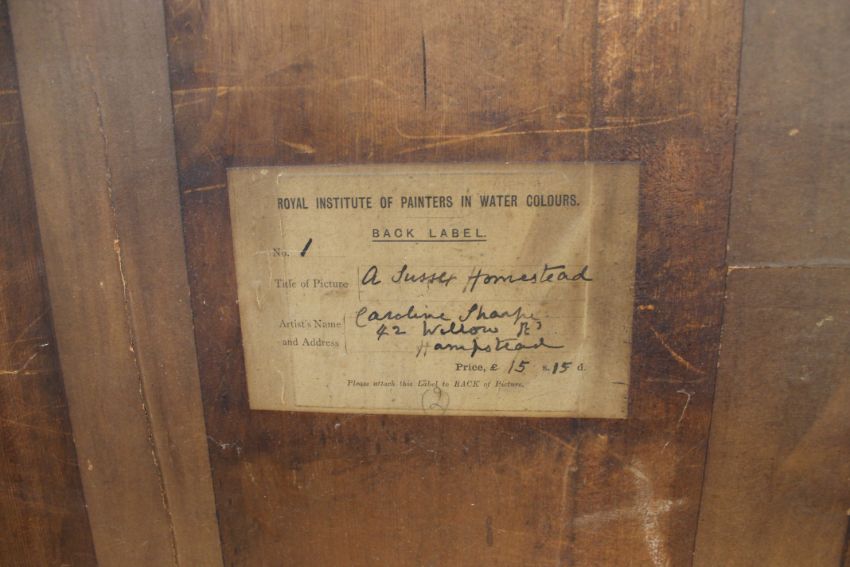 ROYAL INSTITUTE OF PAINTERS IN WATER COLOURS.
BACK LABEL.
No. 1
Title of Picture A Sussex Homestead
Artist's Name and Address Caroline Sharpe
42 Willow Rd
Hampstead
Price, £ 15 s. 15 d.
Please attach this Label to BACK of Picture.
2